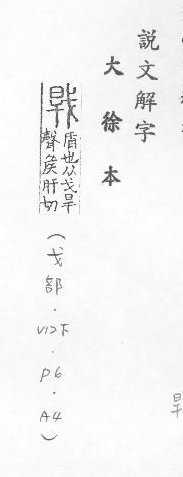 說文解字
大徐本
戟 盾也从戈旱
聲矦肝切
(戈部.VI下.P6.A4)
旱